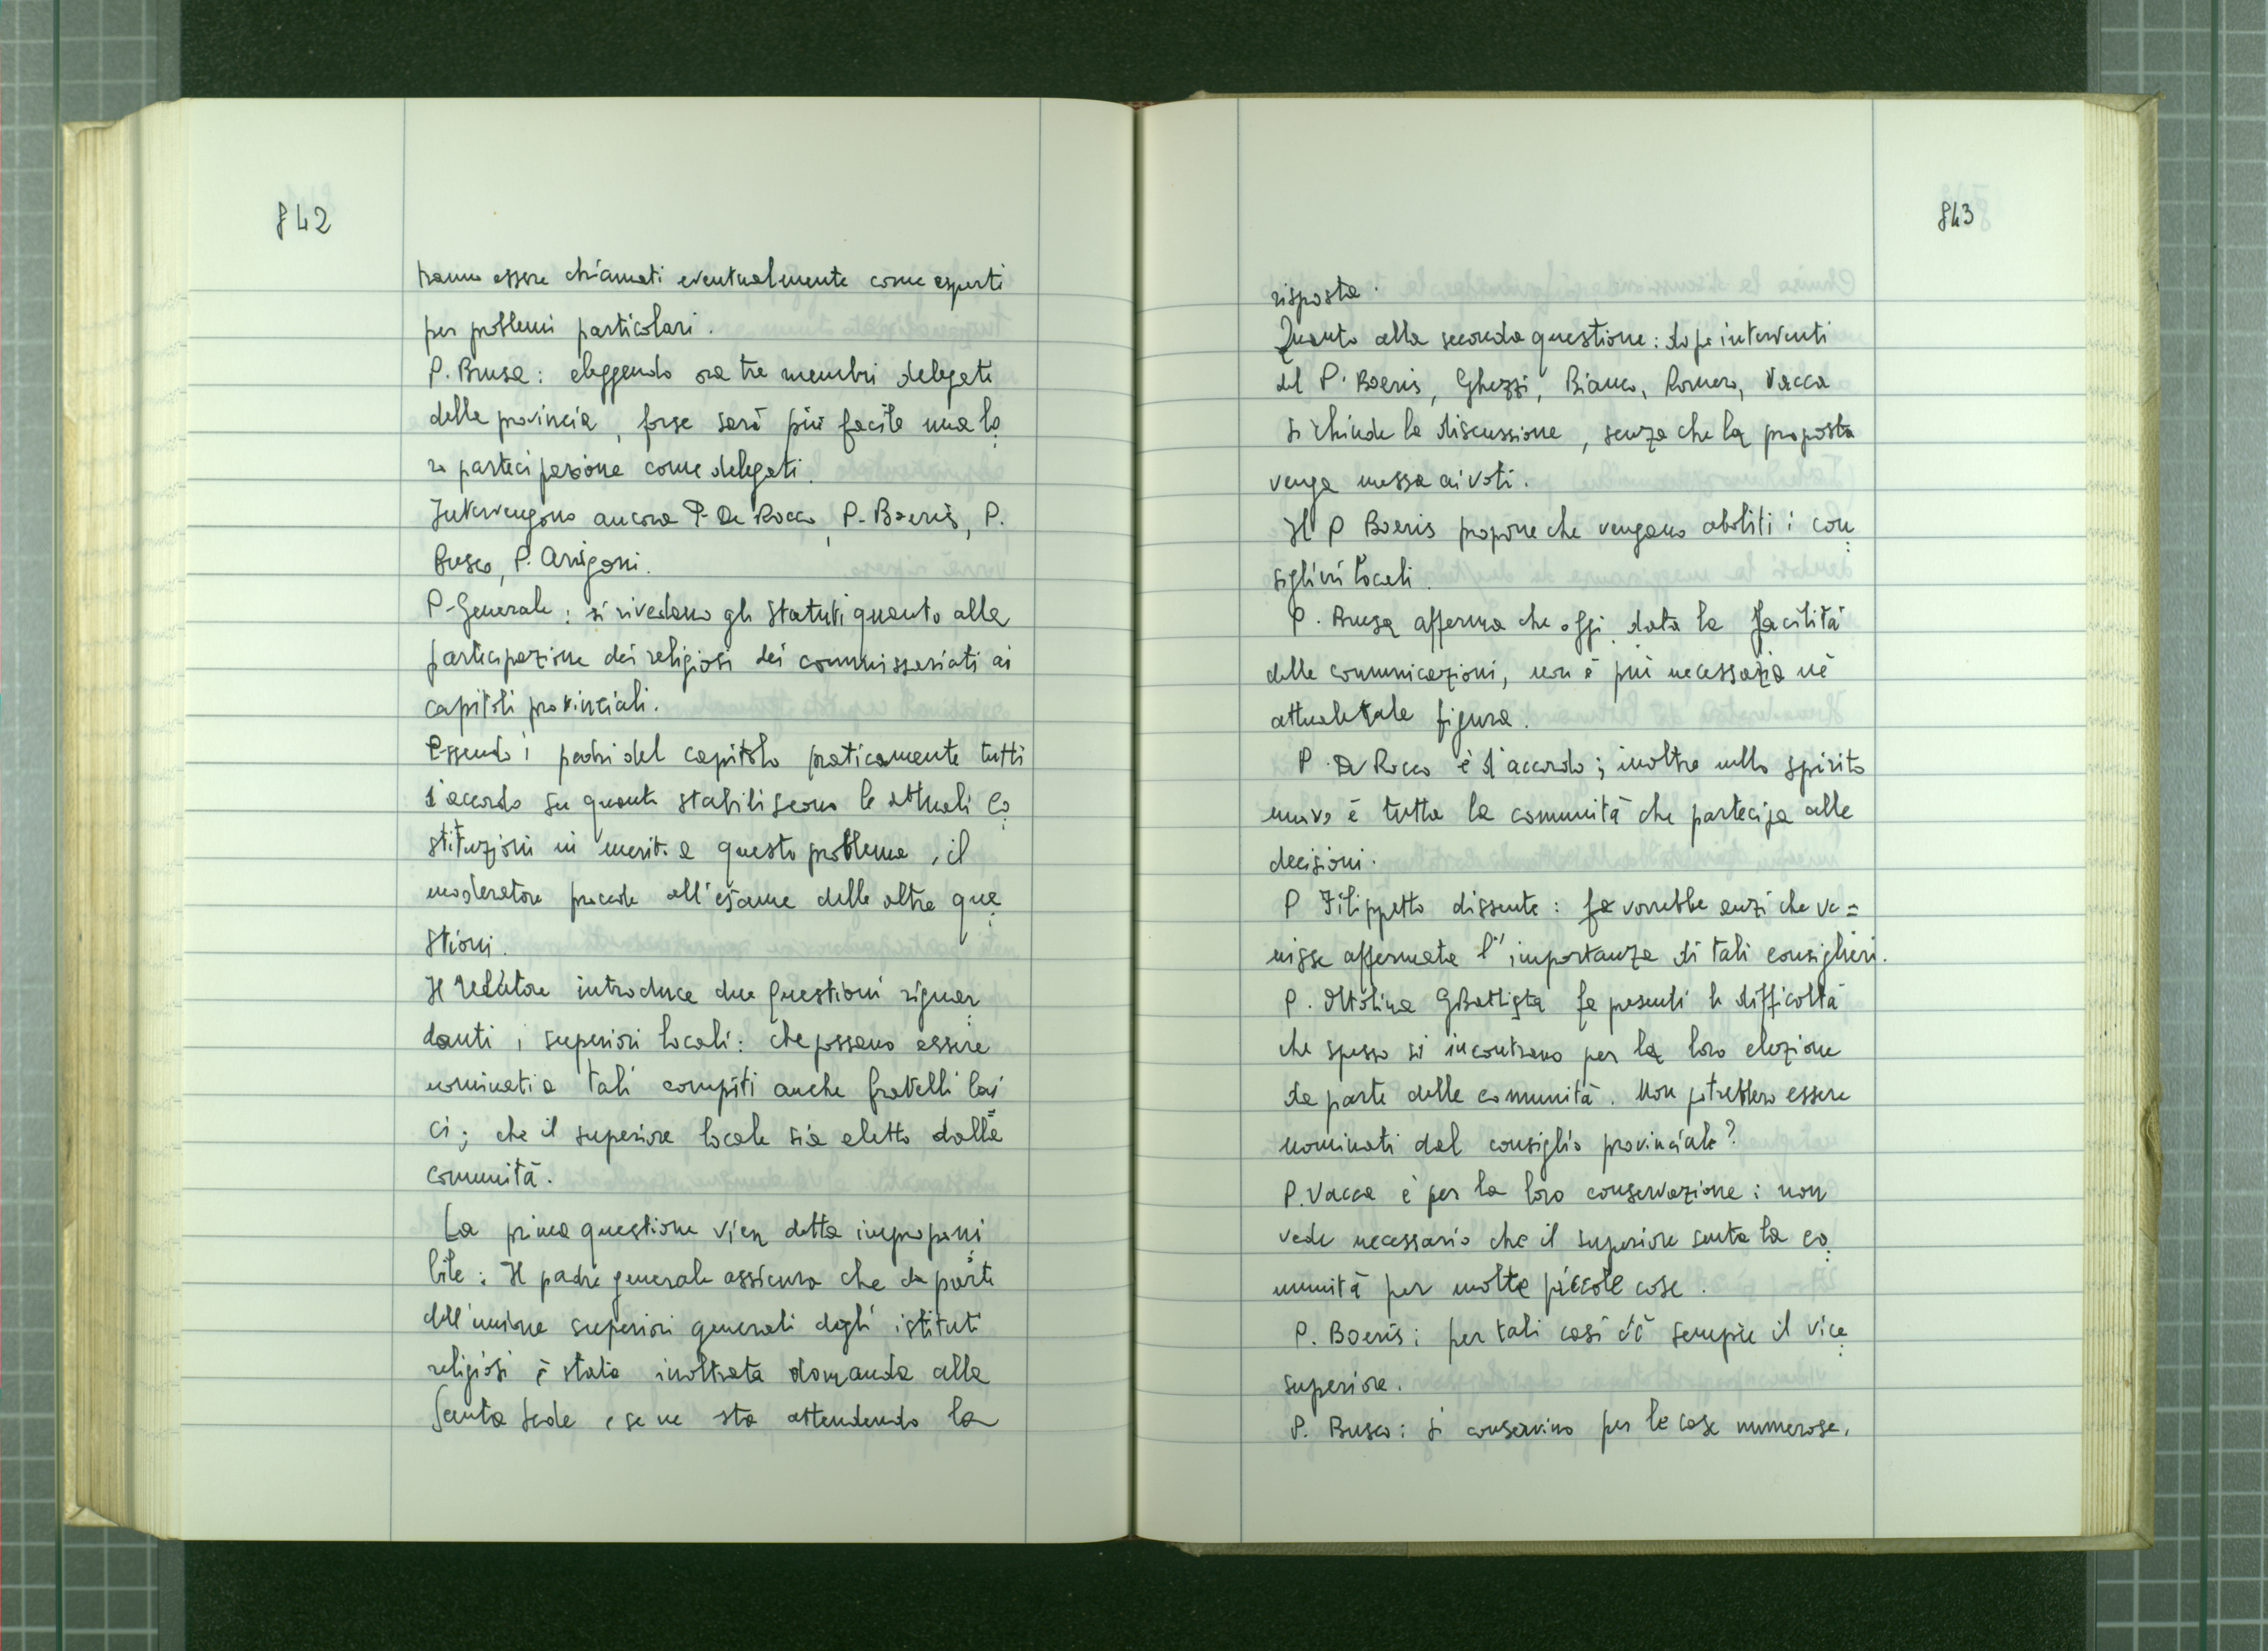 842
ranno essere chiamati eventualmente come esperti
per problemi particolari.
P. Brusa: eleggendo ora tre membri delegati
della provincia, forse sarà più facile una lo
ro partecipazione come delegati.
Intervengono ancora P. De Rocco, P. Boeris, P.
Busco, P. Arrigoni.
P. Generale: si rivedano gli Statuti quanto alla
partecipazione dei religiosi dei commissariati ai
capitoli provinciali.
Essendo i padri del capitolo praticamente tutti
d'accordo su quanto stabiliscono le attuali Co
stituzioni in merito a questo problema, il
moderatore procede all'esame delle altre que
stioni.
Il relatore introduce due questioni riguar
danti i superiori locali: che possano essere
nominati a tali compiti anche fratelli lai
ci; che il superiore locale sia eletto dalla
comunità.
La prima questione vien detta improponi
bile: Il padre generale assicura che da parte
dell'unione superiori generali degli istituti
religiosi è stata inoltrata domanda alla
Santa Sede e se ne sta attendendo la
843
risposta.
Quanto alla seconda questione: dopo interventi
del P. Boeris, Ghezzi, Bianco, Romero, Vacca
si chiude la discussione, senza che la proposta
venga messa ai voti.
Il P Boeris propone che vengano aboliti i con
siglieri locali.
P. Brusa afferma che oggi, data la facilità
delle comunicazioni, non è più necessaria nè
attuale tale figura.
P. De Rocco è d'accordo; inoltre nello spirito
nuovo è tutta la comunità che partecipa alle
decisioni.
P Filippetto dissente: fa vorrebbe anzi che ve=
nisse affermata l'importanza di tali consiglieri.
P. Ottolina GBattista fa presenti le difficoltà
che spesso si incontrano per la loro elezione
da parte delle comunità. Non potrebbero essere
nominati dal consiglio provinciale?
P. Vacca è per la loro conservazione: non
vede necessario che il superiore senta la co
munità per molte piccole cose.
P. Boeris: per tali casi c'è sempre il vice
superiore.
P. Busco: si conservino per le case numerose,